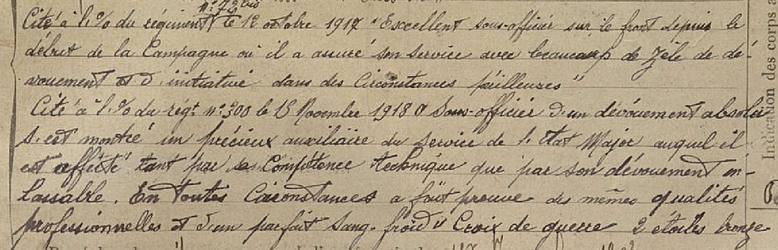 n° 72 bis
Cité à l'% du régiment le 12 octobre 1917 "Excellent sous-officier sur le front depuis le
début de la Campagne où il a assuré son service avec beaucoup de Zèle de dé-
vouement et d'initiative dans des Circonstances périlleuses"
Cité à l'% du régt n° 300 le 13 Novembre 1918 "Sous-officier d'un dévouement absolu
s'est montré un précieux auxiliaire du service de l'Etat Major auquel il
est affecté tant par sa Compétence technique que par son dévouement in-
lassable. En toutes Circonstances a fait preuve des mêmes qualités
professionnelles et d'un parfait sang-froid" Croix de guerre 2 étoiles bronze
Indication des corps